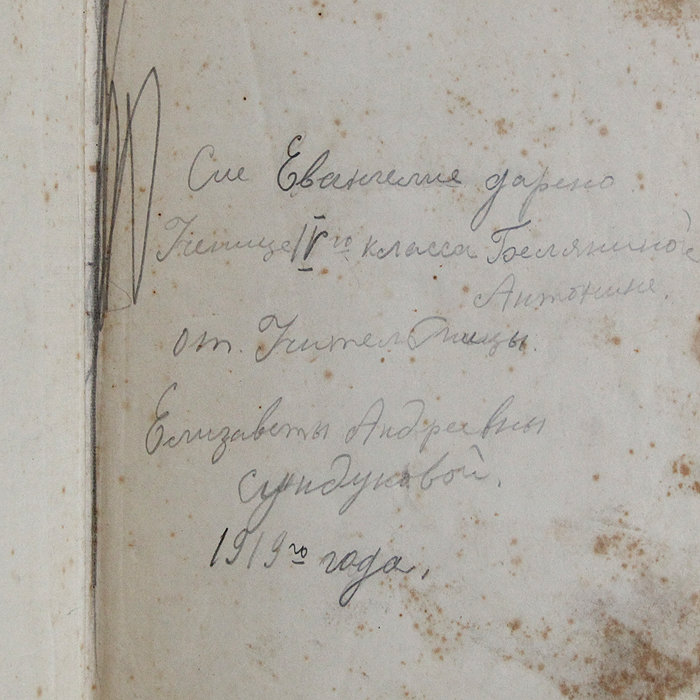 Сие Евангелие дарено
Ученице IV го класса Беляниной
Антонине.
от Учительницы.
Елизаветы Андреевны
Сундуковой.
1919 го года.